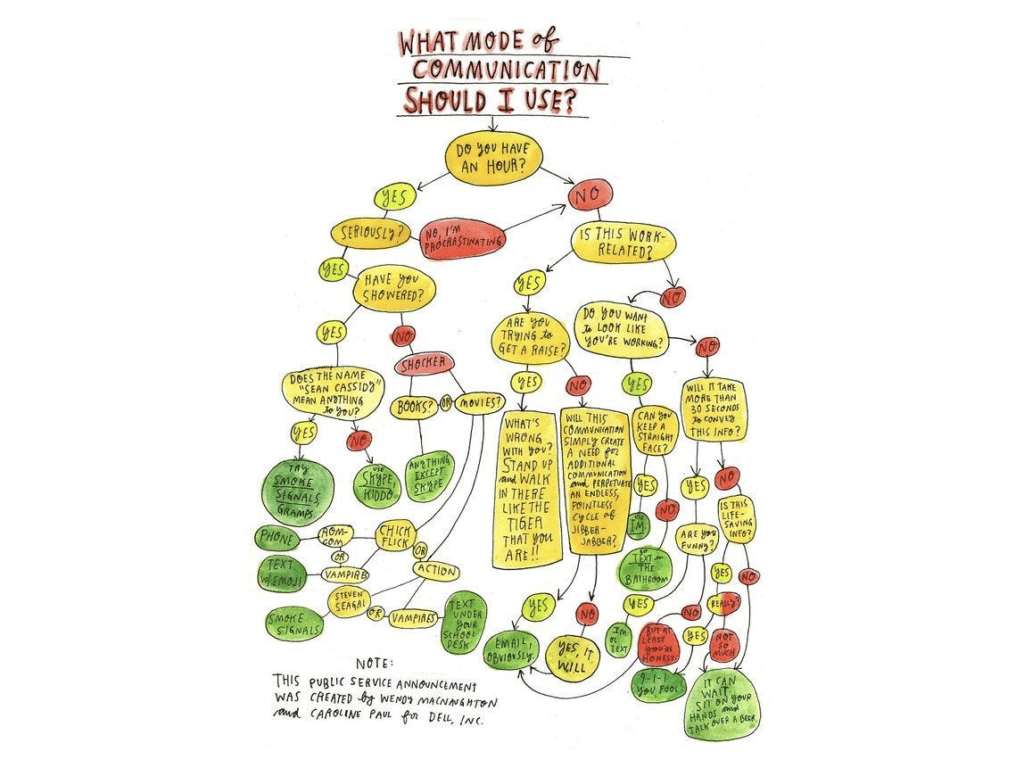 WHAT MODE of
COMMUNICATION
SHOULD I USE?
DO YOU HAVE
AN HOUR?
YES
NO
SERIOUSLY?
NO, I'M
PROCRASTINATING
IS THIS WORK-
RELATED?
YES
HAVE YOU
SHOWERED?
YES
NO
YES
NO
DO YOU WANT
to LOOK LIKE
YOU'RE WORKING?
ARE YOU
TRYING to
GET A RAISE?
NO
SHOCKER
DOES THE NAME
"SEAN CASSIDY"
MEAN ANYTHING
to YOU?
BOOKS?
OR
MOVIES?
YES
NO
YES
WILL IT TAKE
MORE THAN
30 SECONDS
to CONVEY
THIS INFO?
YES
NO
TRY
SMOKE
SIGNALS
GRAMPS
USE
SKYPE,
KIDDO
ANYTHING
EXCEPT
SKYPE
WHAT'S
WRONG
WITH YOU?
STAND UP
and WALK
IN THERE
LIKE THE
TIGER
THAT YOU
ARE!!
WILL THIS
COMMUNICATION
SIMPLY CREATE
A NEED for
ADDITIONAL
COMMUNICATION
and PERPETUATE
AN ENDLESS,
POINTLESS
CYCLE of
JIBBER-
JABBER?
CAN YOU
KEEP A
STRAIGHT
FACE?
YES
NO
YES
NO
USE
IM
GO
TEXT in
THE
BATHROOM
ARE YOU
FUNNY?
IS THIS
LIFE-
SAVING
INFO?
PHONE
ROM-
COM
OR
CHICK
FLICK
TEXT
W/EMOJI
VAMPIRES
OR
ACTION
STEVEN
SEAGAL
OR
VAMPIRES
SMOKE
SIGNALS
TEXT
UNDER
YOUR
SCHOOL
DESK
YES
NO
YES
NO
YES
NO
REALLY?
EMAIL,
OBVIOUSLY.
YES, IT
WILL
IM
OR
TEXT
BUT AT
LEAST
YOU'RE
HONEST.
YES
NOT
SO
MUCH
9-1-1
YOU FOOL!
IT CAN
WAIT.
SIT ON YOUR
HANDS and
TALK OVER A BEER.
NOTE:
THIS PUBLIC SERVICE ANNOUNCEMENT
WAS CREATED by WENDY MACNAUGHTON
and CAROLINE PAUL for DELL, INC.